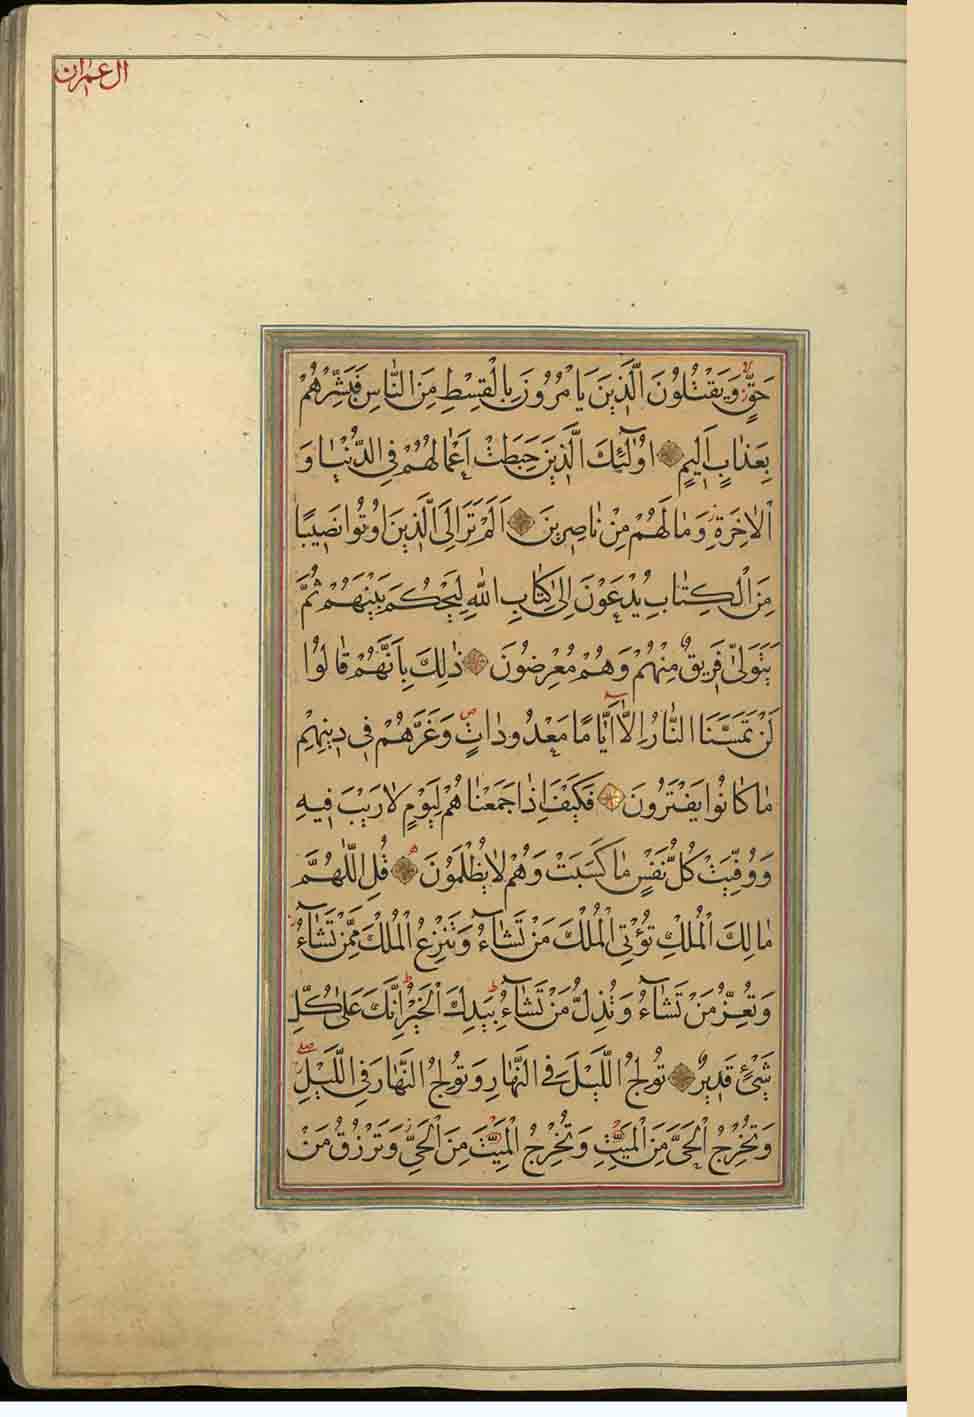 ال عمران
حَقٍّ وَيَقْتُلُونَ الَّذِينَ يَأْمُرُونَ بِالْقِسْطِ مِنَ النَّاسِ فَبَشِّرْهُمْ
بِعَذَابٍ اَلِيمٍ اُولٰٓئِكَ الَّذِينَ حَبِطَتْ اَعْمَالُهُمْ فِي الدُّنْيَا وَ
الْاٰخِرَةِ وَمَا لَهُمْ مِنْ نَاصِرِينَ اَلَمْ تَرَ اِلَى الَّذِينَ اُوتُوا نَصِيبًا
مِنَ الْكِتَابِ يُدْعَوْنَ اِلٰى كِتَابِ اللّٰهِ لِيَحْكُمَ بَيْنَهُمْ ثُمَّ
يَتَوَلّٰى فَرِيقٌ مِنْهُمْ وَهُمْ مُعْرِضُونَ ذٰلِكَ بِاَنَّهُمْ قَالُوا
لَنْ تَمَسَّنَا النَّارُ اِلَّآ اَيَّامًا مَعْدُودَاتٍ وَغَرَّهُمْ فِي دِينِهِمْ
مَا كَانُوا يَفْتَرُونَ فَكَيْفَ اِذَا جَمَعْنَاهُمْ لِيَوْمٍ لَا رَيْبَ فِيهِ
وَوُفِّيَتْ كُلُّ نَفْسٍ مَا كَسَبَتْ وَهُمْ لَا يُظْلَمُونَ قُلِ اللّٰهُمَّ
مَالِكَ الْمُلْكِ تُؤْتِي الْمُلْكَ مَنْ تَشَآءُ وَتَنْزِعُ الْمُلْكَ مِمَّنْ تَشَآءُ
وَتُعِزُّ مَنْ تَشَآءُ وَتُذِلُّ مَنْ تَشَآءُ بِيَدِكَ الْخَيْرُ اِنَّكَ عَلٰى كُلِّ
شَيْءٍ قَدِيرٌ تُولِجُ اللَّيْلَ فِي النَّهَارِ وَتُولِجُ النَّهَارَ فِي اللَّيْلِ
وَتُخْرِجُ الْحَيَّ مِنَ الْمَيِّتِ وَتُخْرِجُ الْمَيِّتَ مِنَ الْحَيِّ وَتَرْزُقُ مَنْ